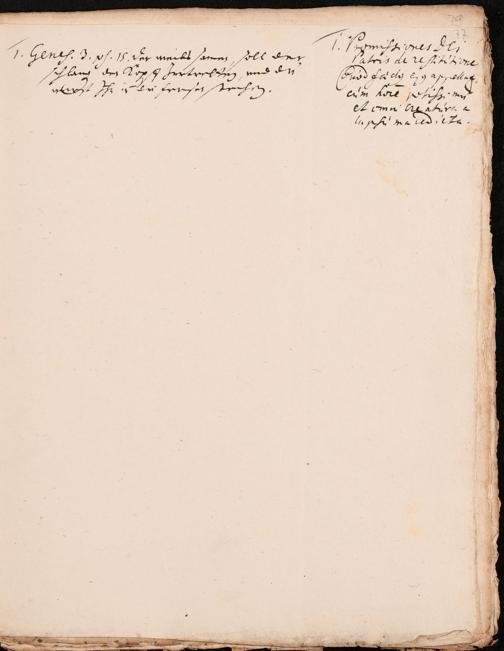 1. Genes. 3. vs. 15. der weibs samen soll der
schlang den Kopff zertretten, und du
wirst Ihn in die fersen stechen.
1. Promissiones Dei
Patris de restitutione
quod foedus
cum
et omni creatura a
lapsu maledicta.
37